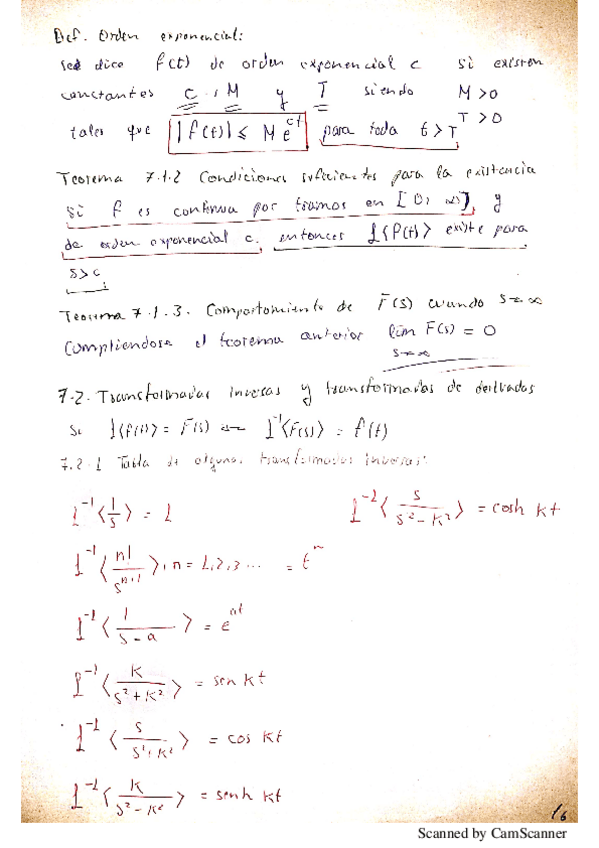 Def. Orden exponencial:
se dice f(t) de orden exponencial c si existen
constantes c, M y T siendo M>0
T>0
tales que |f(t)| ≤ Me^{ct} para toda t>T
Teorema 7.1.2 Condiciones suficientes para la existencia
si f es continua por tramos en [0, ∞), y
de orden exponencial c, entonces L{f(t)} existe para
s>c
Teorema 7.1.3. Comportamiento de F(s) cuando s→∞
Cumpliendose el teorema anterior lim F(s) = 0
s→∞
7.2. Transformadas inversas y transformadas de derivadas
Si L{f(t)} = F(s) L^{-1}{F(s)} = f(t)
7.2.1 Tabla de algunas transformadas inversas:
L^{-1}{1/s} = 1
L^{-1}{s/(s²-k²)} = cosh kt
L^{-1}{n!/s^{n+1}}, n=1,2,3... = t^n
L^{-1}{1/(s-a)} = e^{at}
L^{-1}{k/(s²+k²)} = sen kt
L^{-1}{s/(s²+k²)} = cos kt
L^{-1}{k/(s²-k²)} = senh kt
16
Scanned by CamScanner